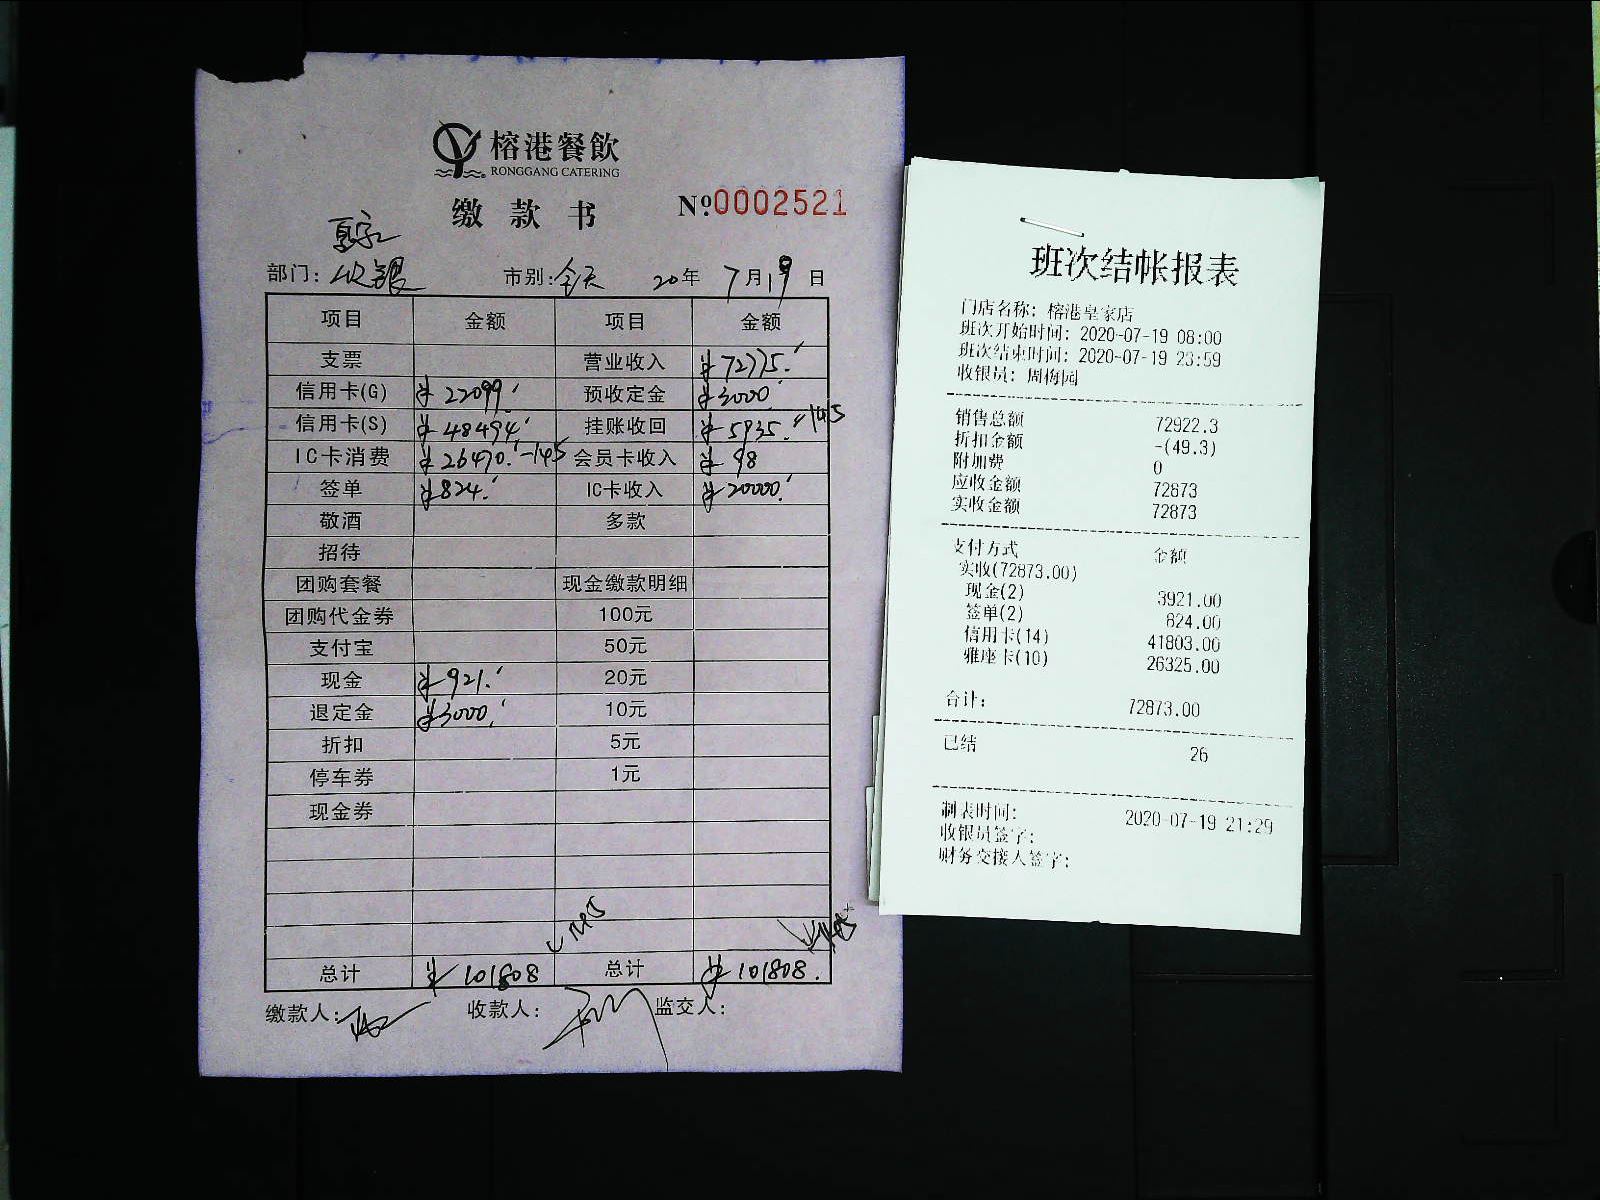 榕港餐飲
RONGGANG CATERING
缴款书 №0002521
皇家
部门：收银 市别：今天 20年7月19日
项目 金额 项目 金额
支票 营业收入 ¥72775.
信用卡(G) ¥22099. 预收定金 ¥3000
信用卡(S) ¥48494 挂账收回 ¥5935. -145
IC卡消费 ¥26470. -145 会员卡收入 ¥98
签单 ¥824. IC卡收入 ¥20000.
敬酒 多款
招待
团购套餐 现金缴款明细
团购代金券 100元
支付宝 50元
现金 ¥921. 20元
退定金 ¥3000. 10元
折扣 5元
停车券 1元
现金券
总计 ¥101808 总计 ¥101808.
缴款人： 收款人： 监交人：
班次结帐报表
门店名称：榕港皇家店
班次开始时间：2020-07-19 08:00
班次结束时间：2020-07-19 23:59
收银员：周梅园
销售总额 72922.3
折扣金额 -(49.3)
附加费 0
应收金额 72873
实收金额 72873
支付方式 金额
实收(72873.00)
现金(2) 3921.00
签单(2) 824.00
信用卡(14) 41803.00
雅座卡(10) 26325.00
合计： 72873.00
已结 26
制表时间： 2020-07-19 21:29
收银员签字：
财务交接人签字：